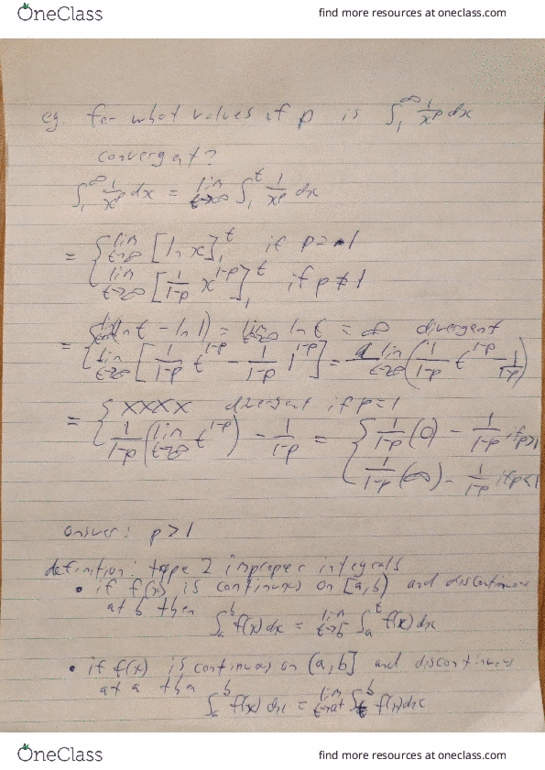 OneClass
find more resources at oneclass.com
eg. for what values of p is ∫₁^∞ 1/x^p dx
convergent?
∫₁^∞ 1/x^p dx = lim t→∞ ∫₁^t 1/x^p dx
= { lim t→∞ [ln x]₁^t if p=1
lim t→∞ [1/(1-p) x^(1-p)]₁^t if p≠1
= { (ln t - ln 1) = lim t→∞ ln t = ∞ divergent
lim t→∞ [1/(1-p) t^(1-p) - 1/(1-p) 1^(1-p)] = lim t→∞ (1/(1-p) t^(1-p) - 1/(1-p))
= { XXXX divergent if p=1
1/(1-p) (lim t→∞ t^(1-p)) - 1/(1-p) = { 1/(1-p) (0) - 1/(1-p) if p>1
1/(1-p) (∞) - 1/(1-p) if p<1
answer: p>1
definition: type 2 improper integrals
• if f(x) is continuous on [a,b) and discontinuous
at b then
∫_a^b f(x)dx = lim t→b⁻ ∫_a^t f(x)dx
• if f(x) is continuous on (a,b] and discontinuous
at a then
∫_a^b f(x)dx = lim t→a⁺ ∫_t^b f(x)dx
OneClass
find more resources at oneclass.com